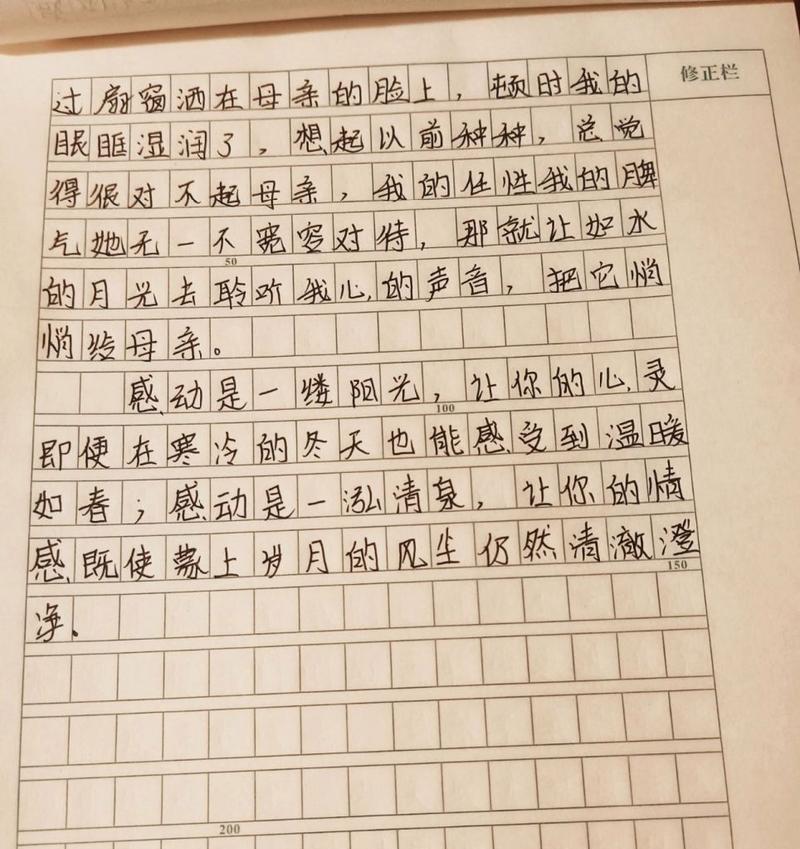 修正栏
过扇窗洒在母亲的脸上，顿时我的
眼眶湿润了，想起以前种种，总觉
得很对不起母亲，我的任性我的脾
气她无一不宽容对待，那就让如水
50
的月光去聆听我心的声音，把它悄
悄给母亲。
感动是一缕阳光，让你的心灵
100
即便在寒冷的冬天也能感受到温暖
如春；感动是一泓清泉，让你的情
感既使蒙上岁月的风尘仍然清澈澄
150
净。
200